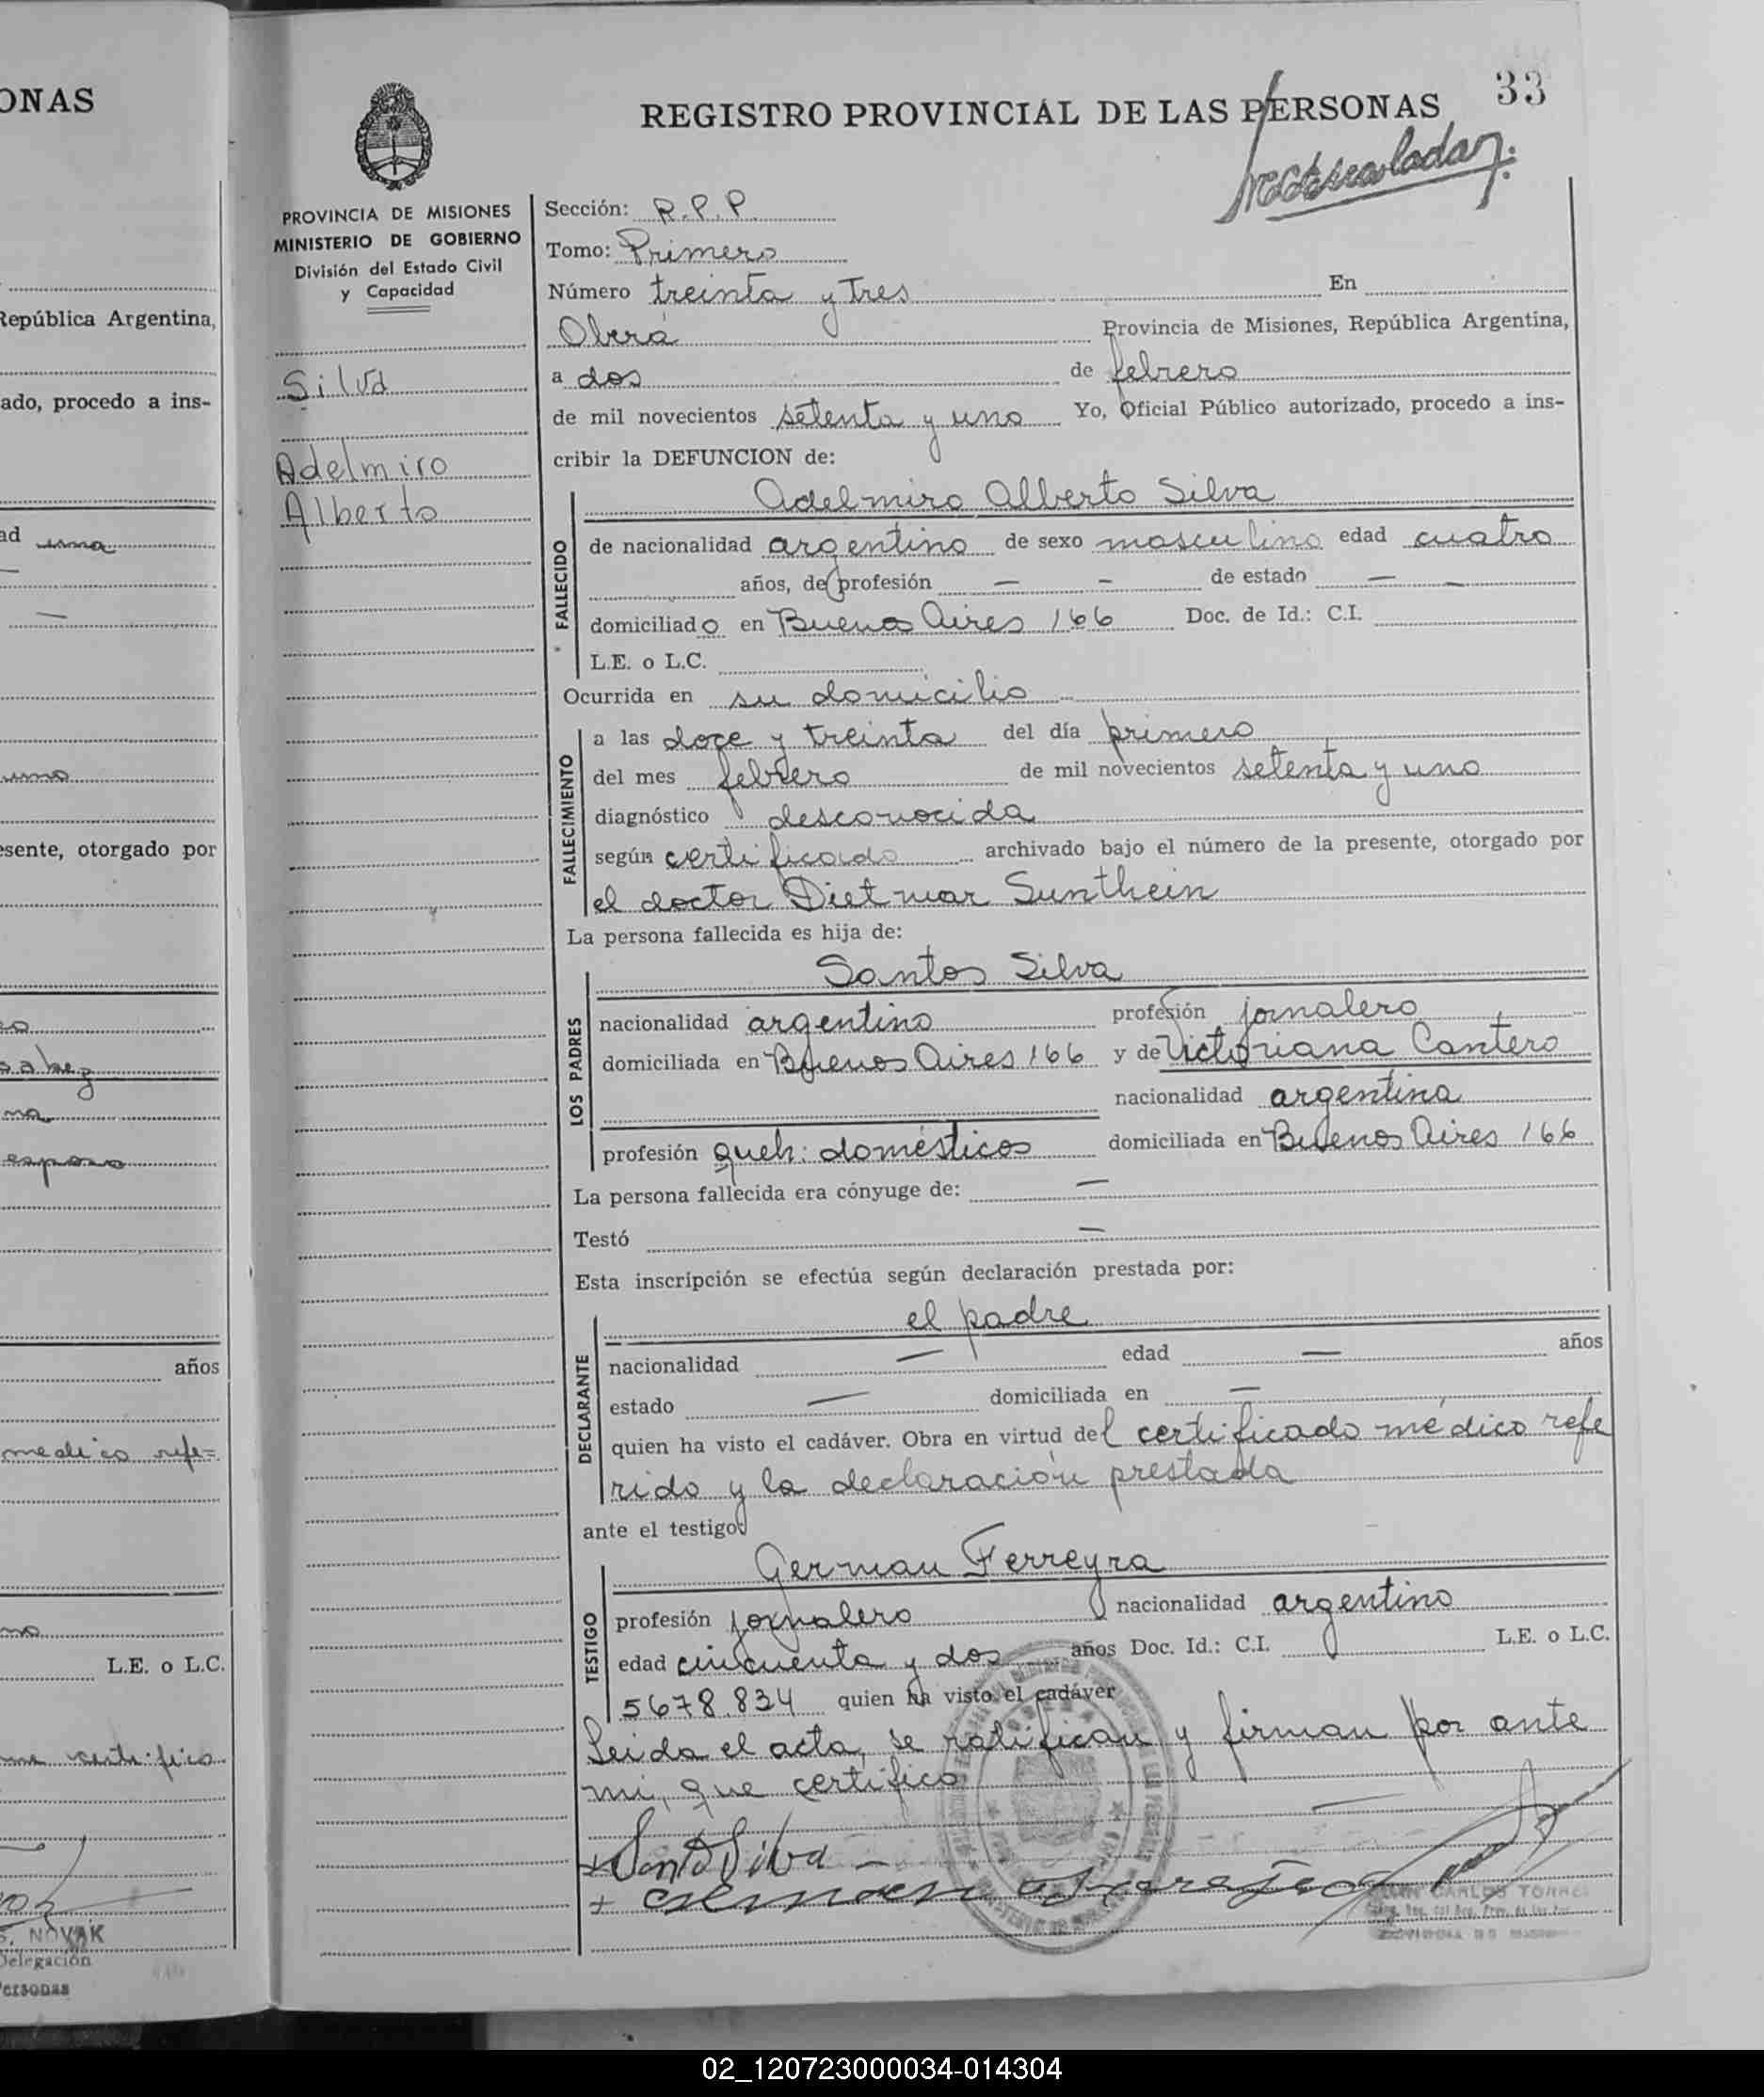 ONAS
República Argentina,
ado, procedo a ins-
ad una
uno
esente, otorgado por
esposo
años
medico refe=
L.E. o L.C.
certifico
S. NOVAK
Delegación
Personas
33
REGISTRO PROVINCIAL DE LAS PERSONAS
PROVINCIA DE MISIONES
MINISTERIO DE GOBIERNO
División del Estado Civil
y Capacidad
Silva
Adelmiro
Alberto
Sección: R.P.P.
Tomo: Primero
Número treinta y Tres En
Oberá Provincia de Misiones, República Argentina,
a dos de febrero
de mil novecientos setenta y uno Yo, Oficial Público autorizado, procedo a ins-
cribir la DEFUNCION de:
Adelmiro Alberto Silva
FALLECIDO
de nacionalidad argentino de sexo masculino edad cuatro
años, de profesión — - de estado — -
domiciliado en Buenos Aires 166 Doc. de Id.: C.I.
L.E. o L.C.
Ocurrida en su domicilio
FALLECIMIENTO
a las doce y treinta del día primero
del mes febrero de mil novecientos setenta y uno
diagnóstico desconocida
según certificado archivado bajo el número de la presente, otorgado por
el doctor Dietmar Sunthein
La persona fallecida es hija de:
LOS PADRES
Santos Silva
nacionalidad argentino profesión jornalero
domiciliada en Buenos Aires 166 y de Victoriana Cantero
nacionalidad argentina
profesión queh: domésticos domiciliada en Buenos Aires 166
La persona fallecida era cónyuge de: —
Testó —
Esta inscripción se efectúa según declaración prestada por:
DECLARANTE
el padre
nacionalidad — edad — años
estado — domiciliada en —
quien ha visto el cadáver. Obra en virtud del certificado médico refe
rido y la declaración prestada
ante el testigo
TESTIGO
German Ferreyra
profesión jornalero nacionalidad argentino
edad cincuenta y dos años Doc. Id.: C.I. L.E. o L.C.
5678.834 quien ha visto el cadáver
Leida el acta, se ratifican y firman por ante
mi, que certifico
+ Santo Silva -
CARLOS TORRES
02_120723000034-014304